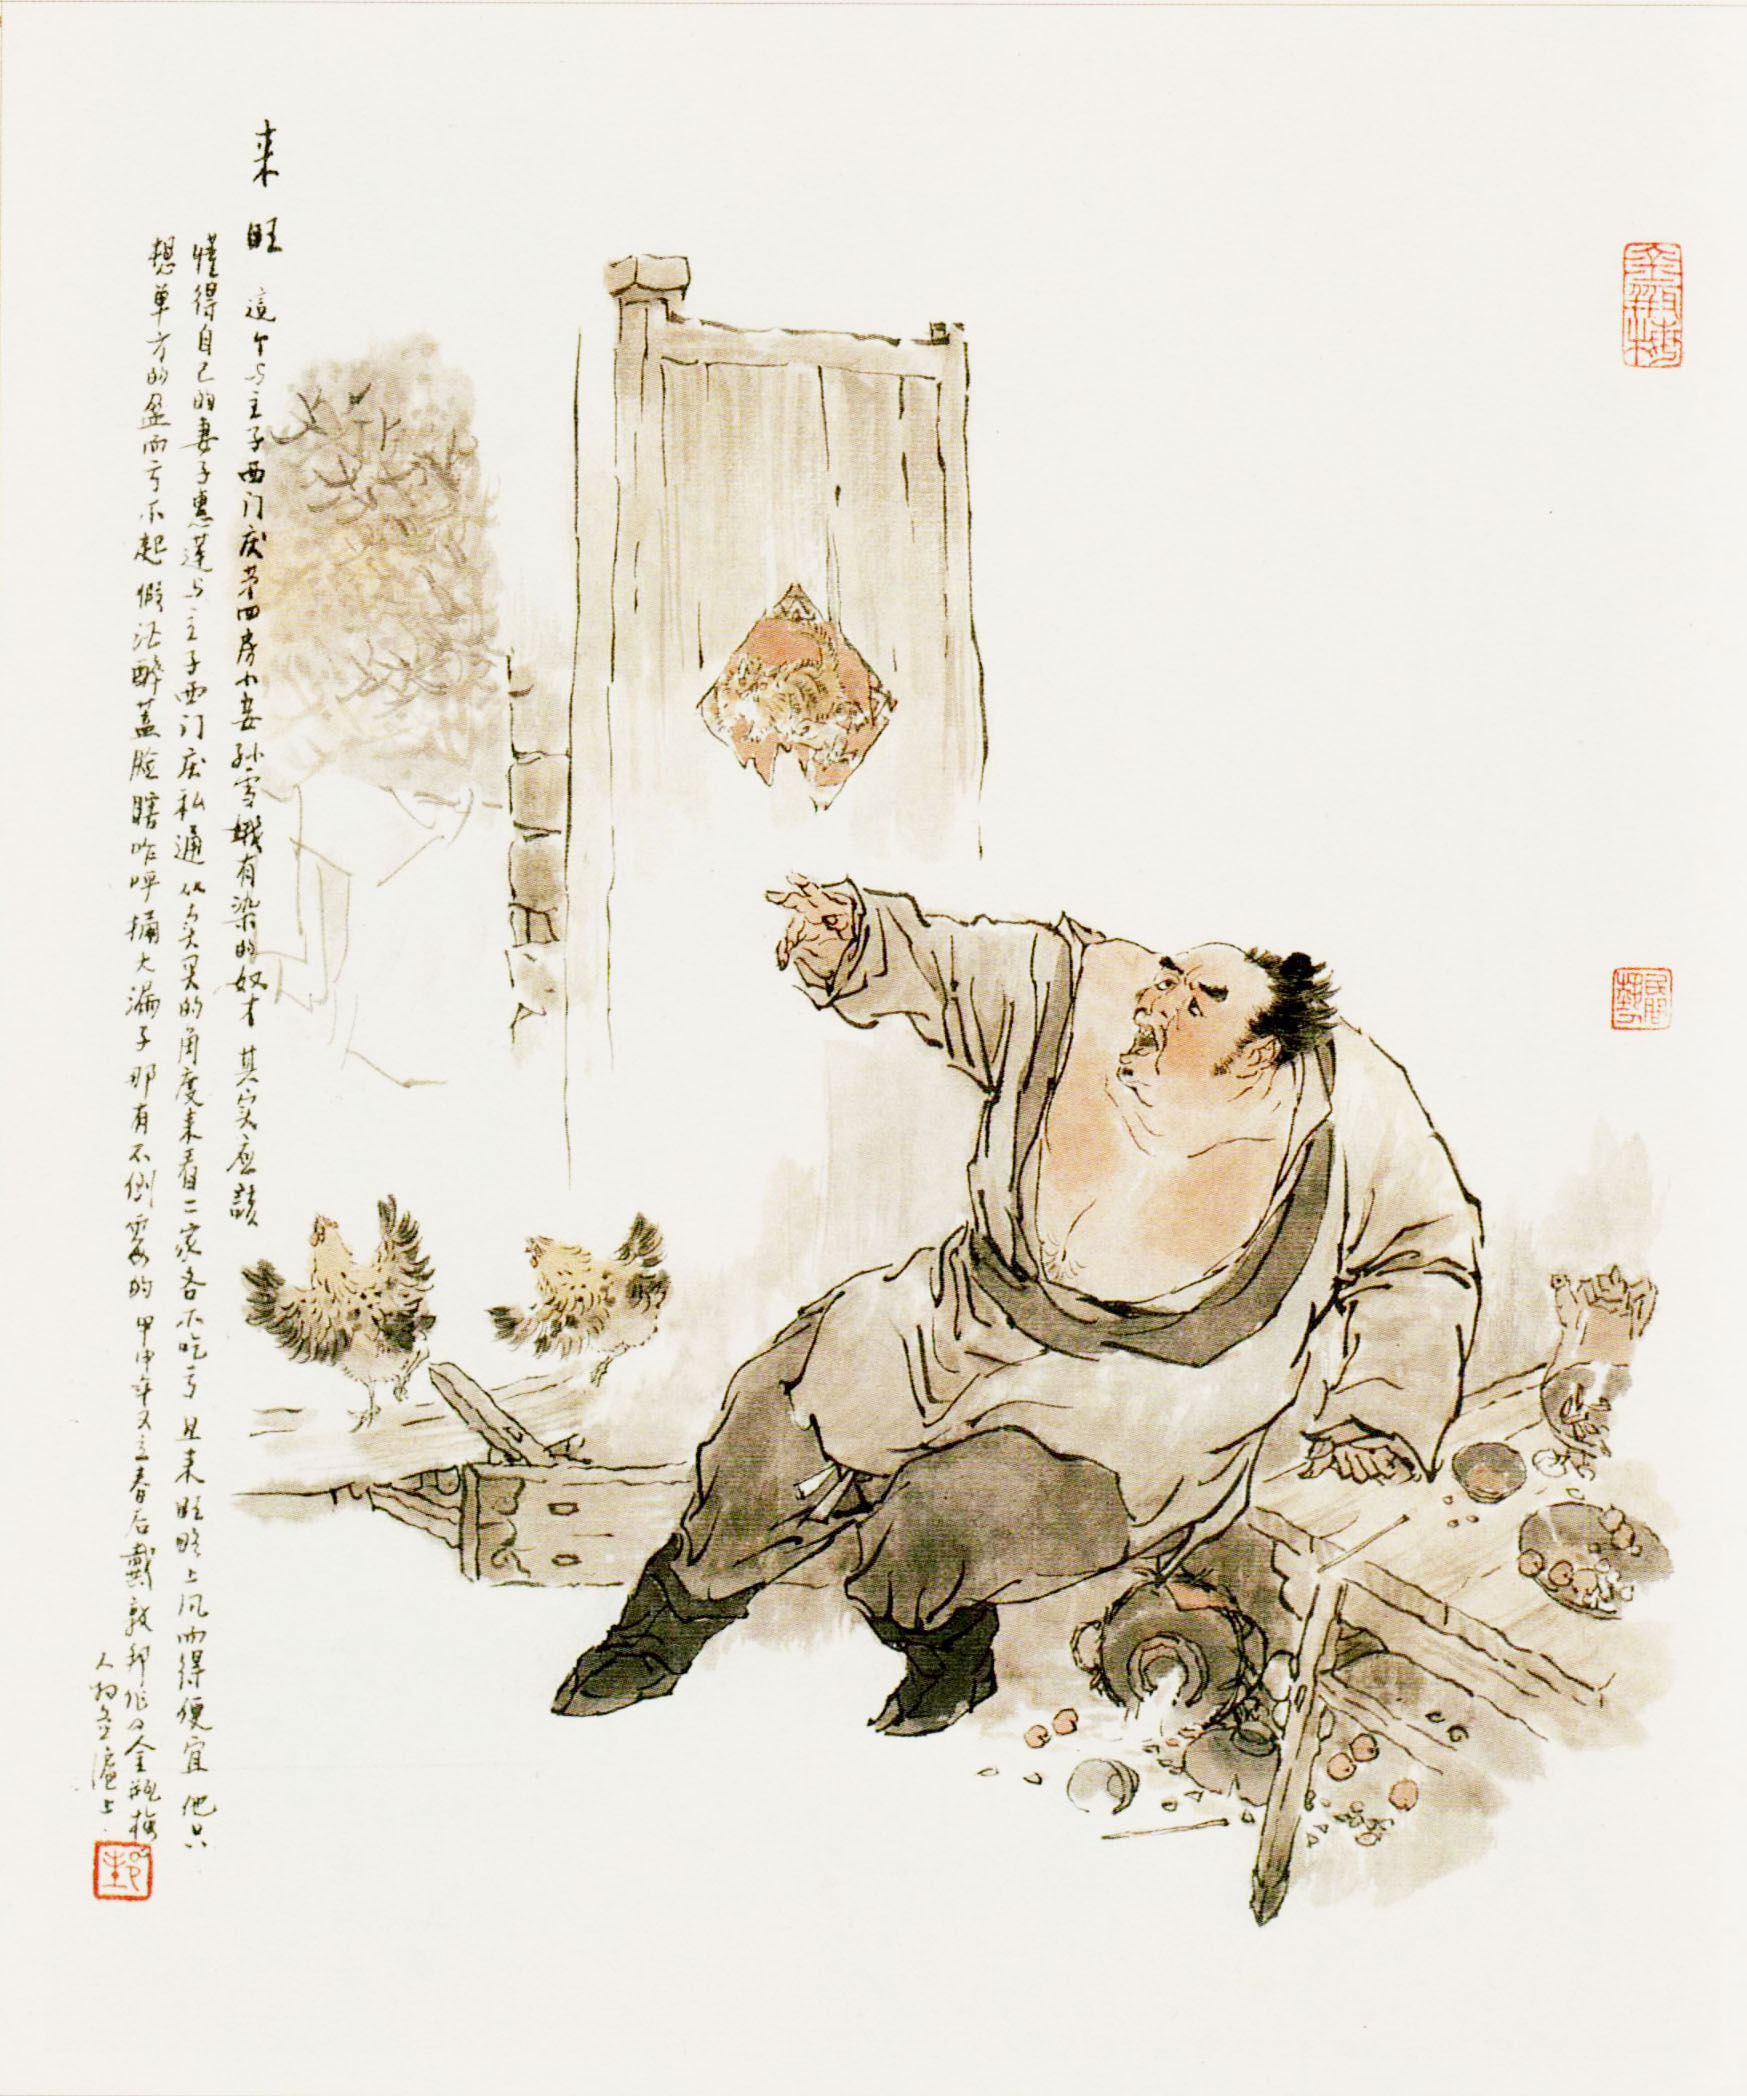 来旺 這个与主子西门庆苐四房小妾孙雪娥有染的奴才 其实应該
懂得自己的妻子惠莲与主子西门庆私通 从卖買的角度来看二家各不吃亏 且来旺略上风而得便宜 他只
想单方的盈而亏不起 假 醉蓋脸瞎咋呼捅大漏子那有不倒霉的 甲申年又立春后戴敦邦作 金瓶梅
人物 滬上
金瓶梅